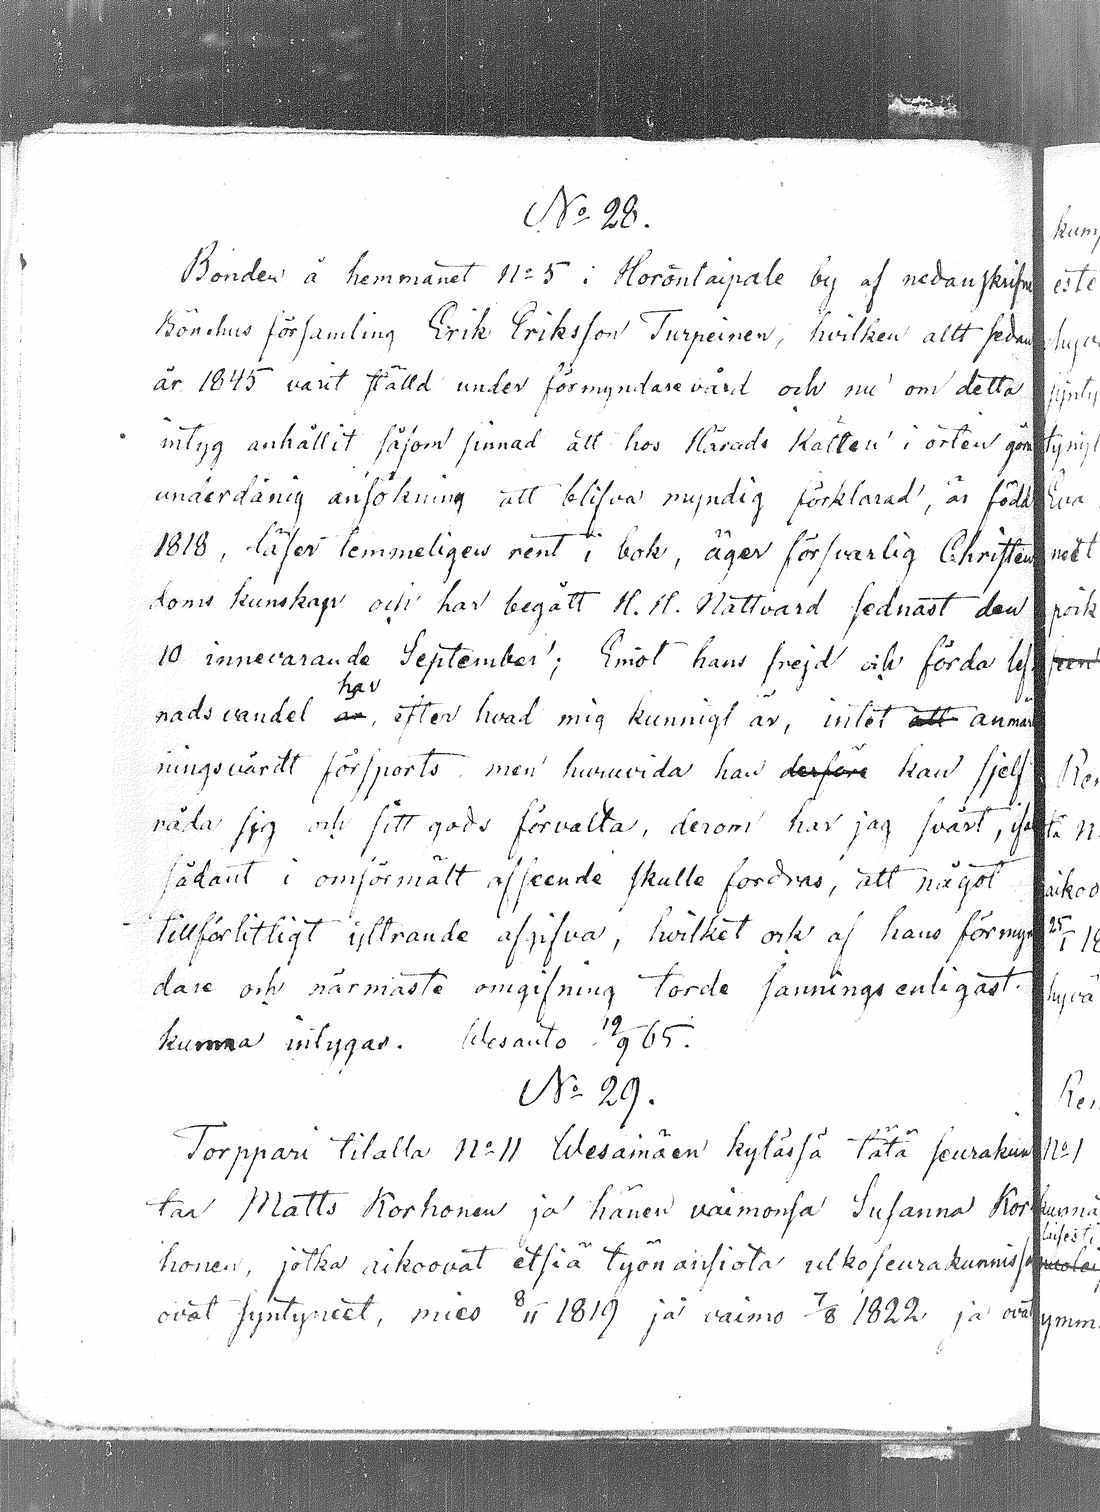 No 28.
Bonden å hemmanet No 5 i Horontaipale by af nedanskrifne
Kapellförsamling Erik Eriksson Turpeinen, hvilken allt sedan
år 1845 varit ställd under förmyndarevård och nu om detta
intyg anhållit såsom sinnad att hos Härads Rätten i orten göra
underdånig ansökning att blifva myndig förklarad, är född
1818, läser temmeligen rent i bok, äger försvarlig Christen
doms kunskap och har begått H. H. Nattvard sednast den
10 innevarande September; Emot hans frejd och förda lef
har
nadsvandel är, efter hvad mig kunnigt är, intet att anmärk
ningsvärdt försports men huruvida han derföre kan sjelf
råda sig och sitt gods förvalta, derom har jag svårt,
sådant i omförmält afseende skulle fordras, att något
tillförlitligt yttrande afgifva, hvilket ock af hans förmyn
dare och närmaste omgifning torde sanningsenligast
kunna intygas. Wesanto 19/9 65.
No 29.
Torppari tilalla No 11 Wesamäen kylässä tätä seurakun
taa Matts Korhonen ja hänen vaimonsa Susanna Kor
honen, jotka aikoovat etsiä työnansiota ulkoseurakunnissa
ovat syntyneet, mies 8/11 1819 ja vaimo 7/8 1822 ja ovat